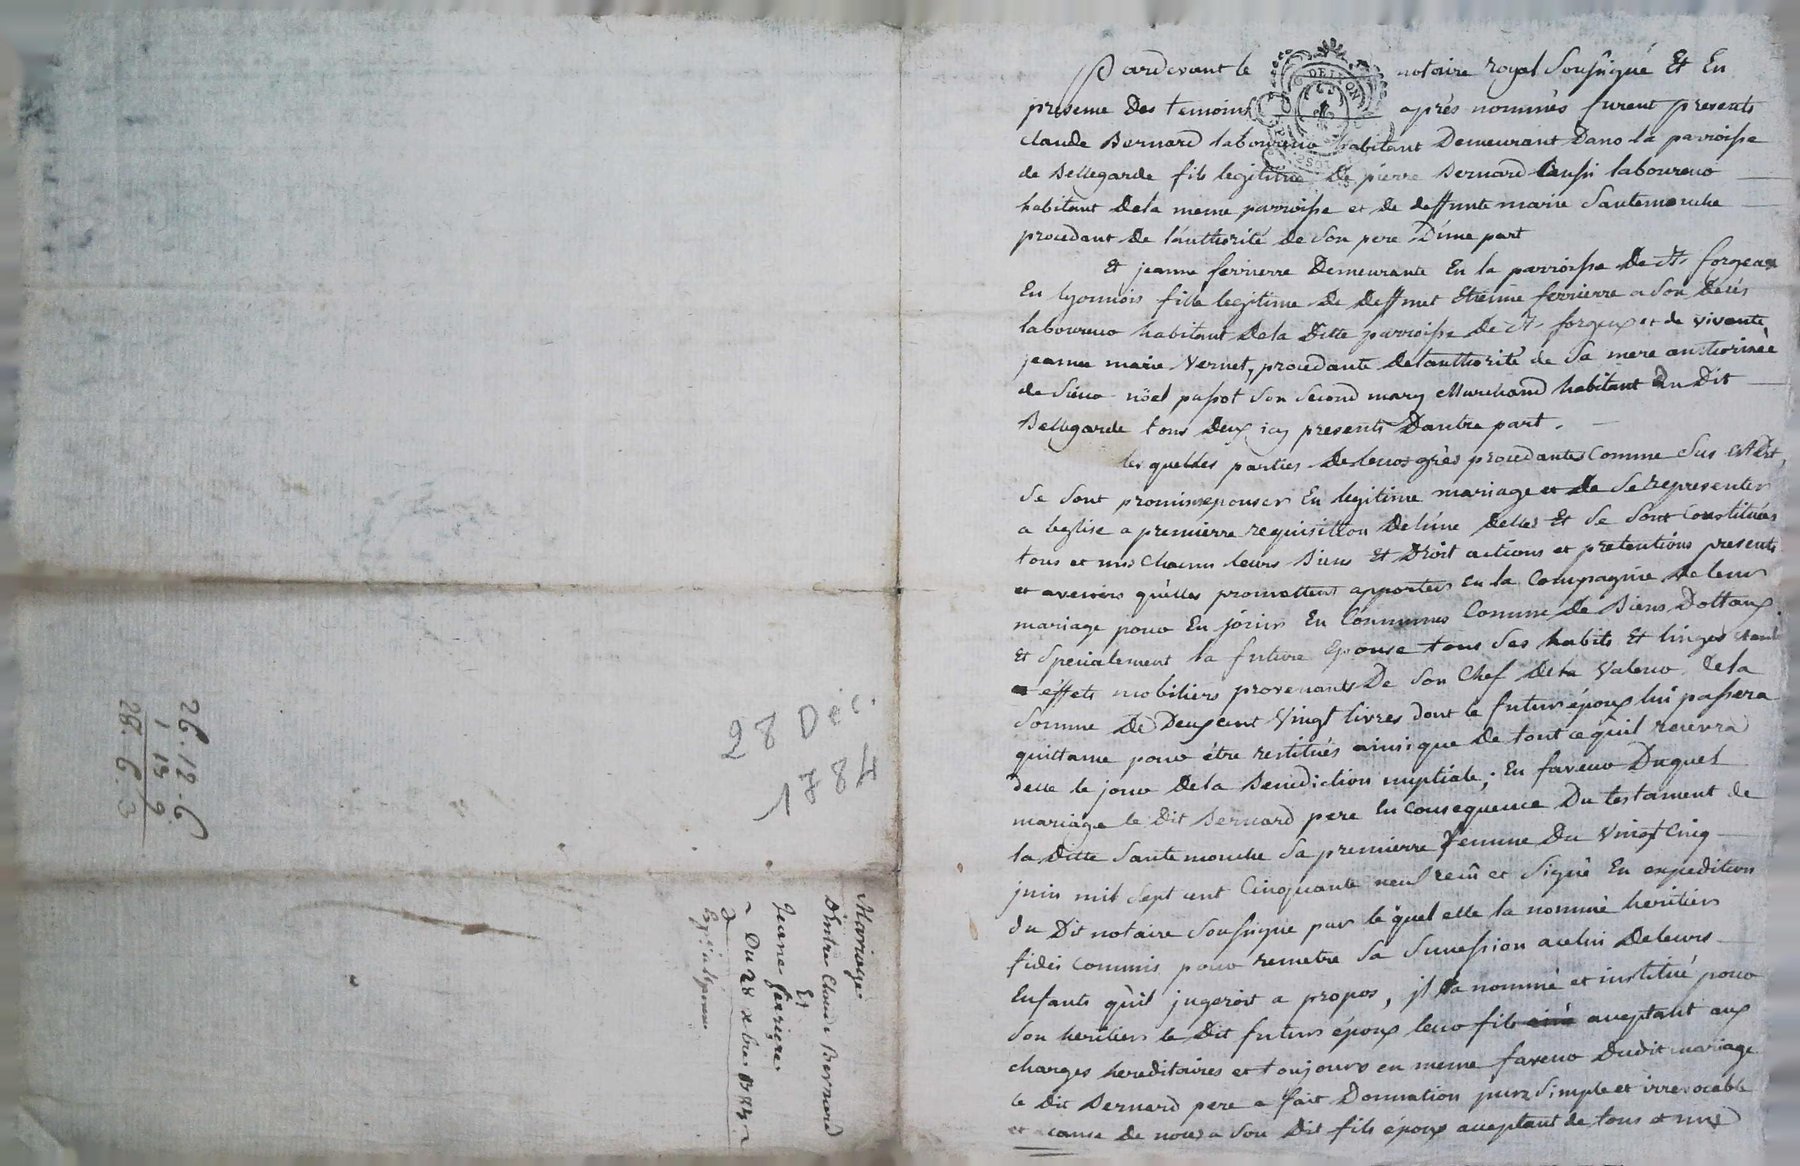 26. 12. 6
1 13 9
28. 6. 3
28 Déc.
1784
Mariage
D'entre Claude Bernard
Et
Jeanne ferriere
Du 28 xbre 1784
Pardevant le notaire royal Soussigné Et En
presence Des temoins après nommés furent presents
claude Bernard laboureur habitant Demeurant Dans la parroisse
de Bellegarde fils legitime De pierre Bernard aussi laboureur
habitant Dela meme parroisse et de deffunte marie Santemouche
procedant de l'authorité de Son pere D'une part
Et jeanne ferrierre Demeurante En la parroisse De St forgeux
En lyonnois fille legitime De Deffunct Etienne ferrierre a Son Decés
laboureur habitant Dela Ditte parroisse De St forgeux et de vivante
jeanne marie Vernet, procedante delauthorité de Sa mere authorisée
de Sieur nöel passot Son Second mary Marchand habitant Du Dit
Bellegarde tous Deux icy presents Dautre part.
les quelles parties De leurs grés procedantes Comme Sus Est Dit,
Se Sont promis epouser En legitime mariage et de Se representer
a leglise a premierre requisition De lúne Delles Et Se Sont Constitués
tous et uns Chacuns leurs Biens Et Droit actions et pretentions presents
et avenirs qu'elles promettent apporter En la Compagnie De leur
mariage pour En jöuir En Communes Comme De Biens Dottaux.
Et Specialement la future Epouse tous Ses habits Et linges
effets mobiliers provenants De Son Chef Dela Valeur Dela
Somme De Deux cent Vingt livres Dont le futur époux lui passera
quittance pour étre restitués ainsi que De tout ce quil recevra
Delle le jour Dela Benediction nuptiale; En faveur Duquel
mariage le Dit Bernard pere En Consequence Du testament de
la Ditte Santemouche Sa premierre femme Du Vingt Cinq
juin mil Sept cent Cinquante neuf reçû et Signé En expedition
du Dit notaire Soussigné par le quel elle la nommé heritier
fidei commis pour remetre Sa Succession acelui Deleurs
Enfants qu'il jugeroit a propos, jl a nommé et institué pour
Son heritier le Dit futur époux leur fils acceptant aux
charges hereditaires et toujours en meme faveur Dudit mariage
le Dit Bernard pere a fait Donnation pure Simple et irrevocable
et a cause de noces a Son Dit fils époux acceptant de tous et uns